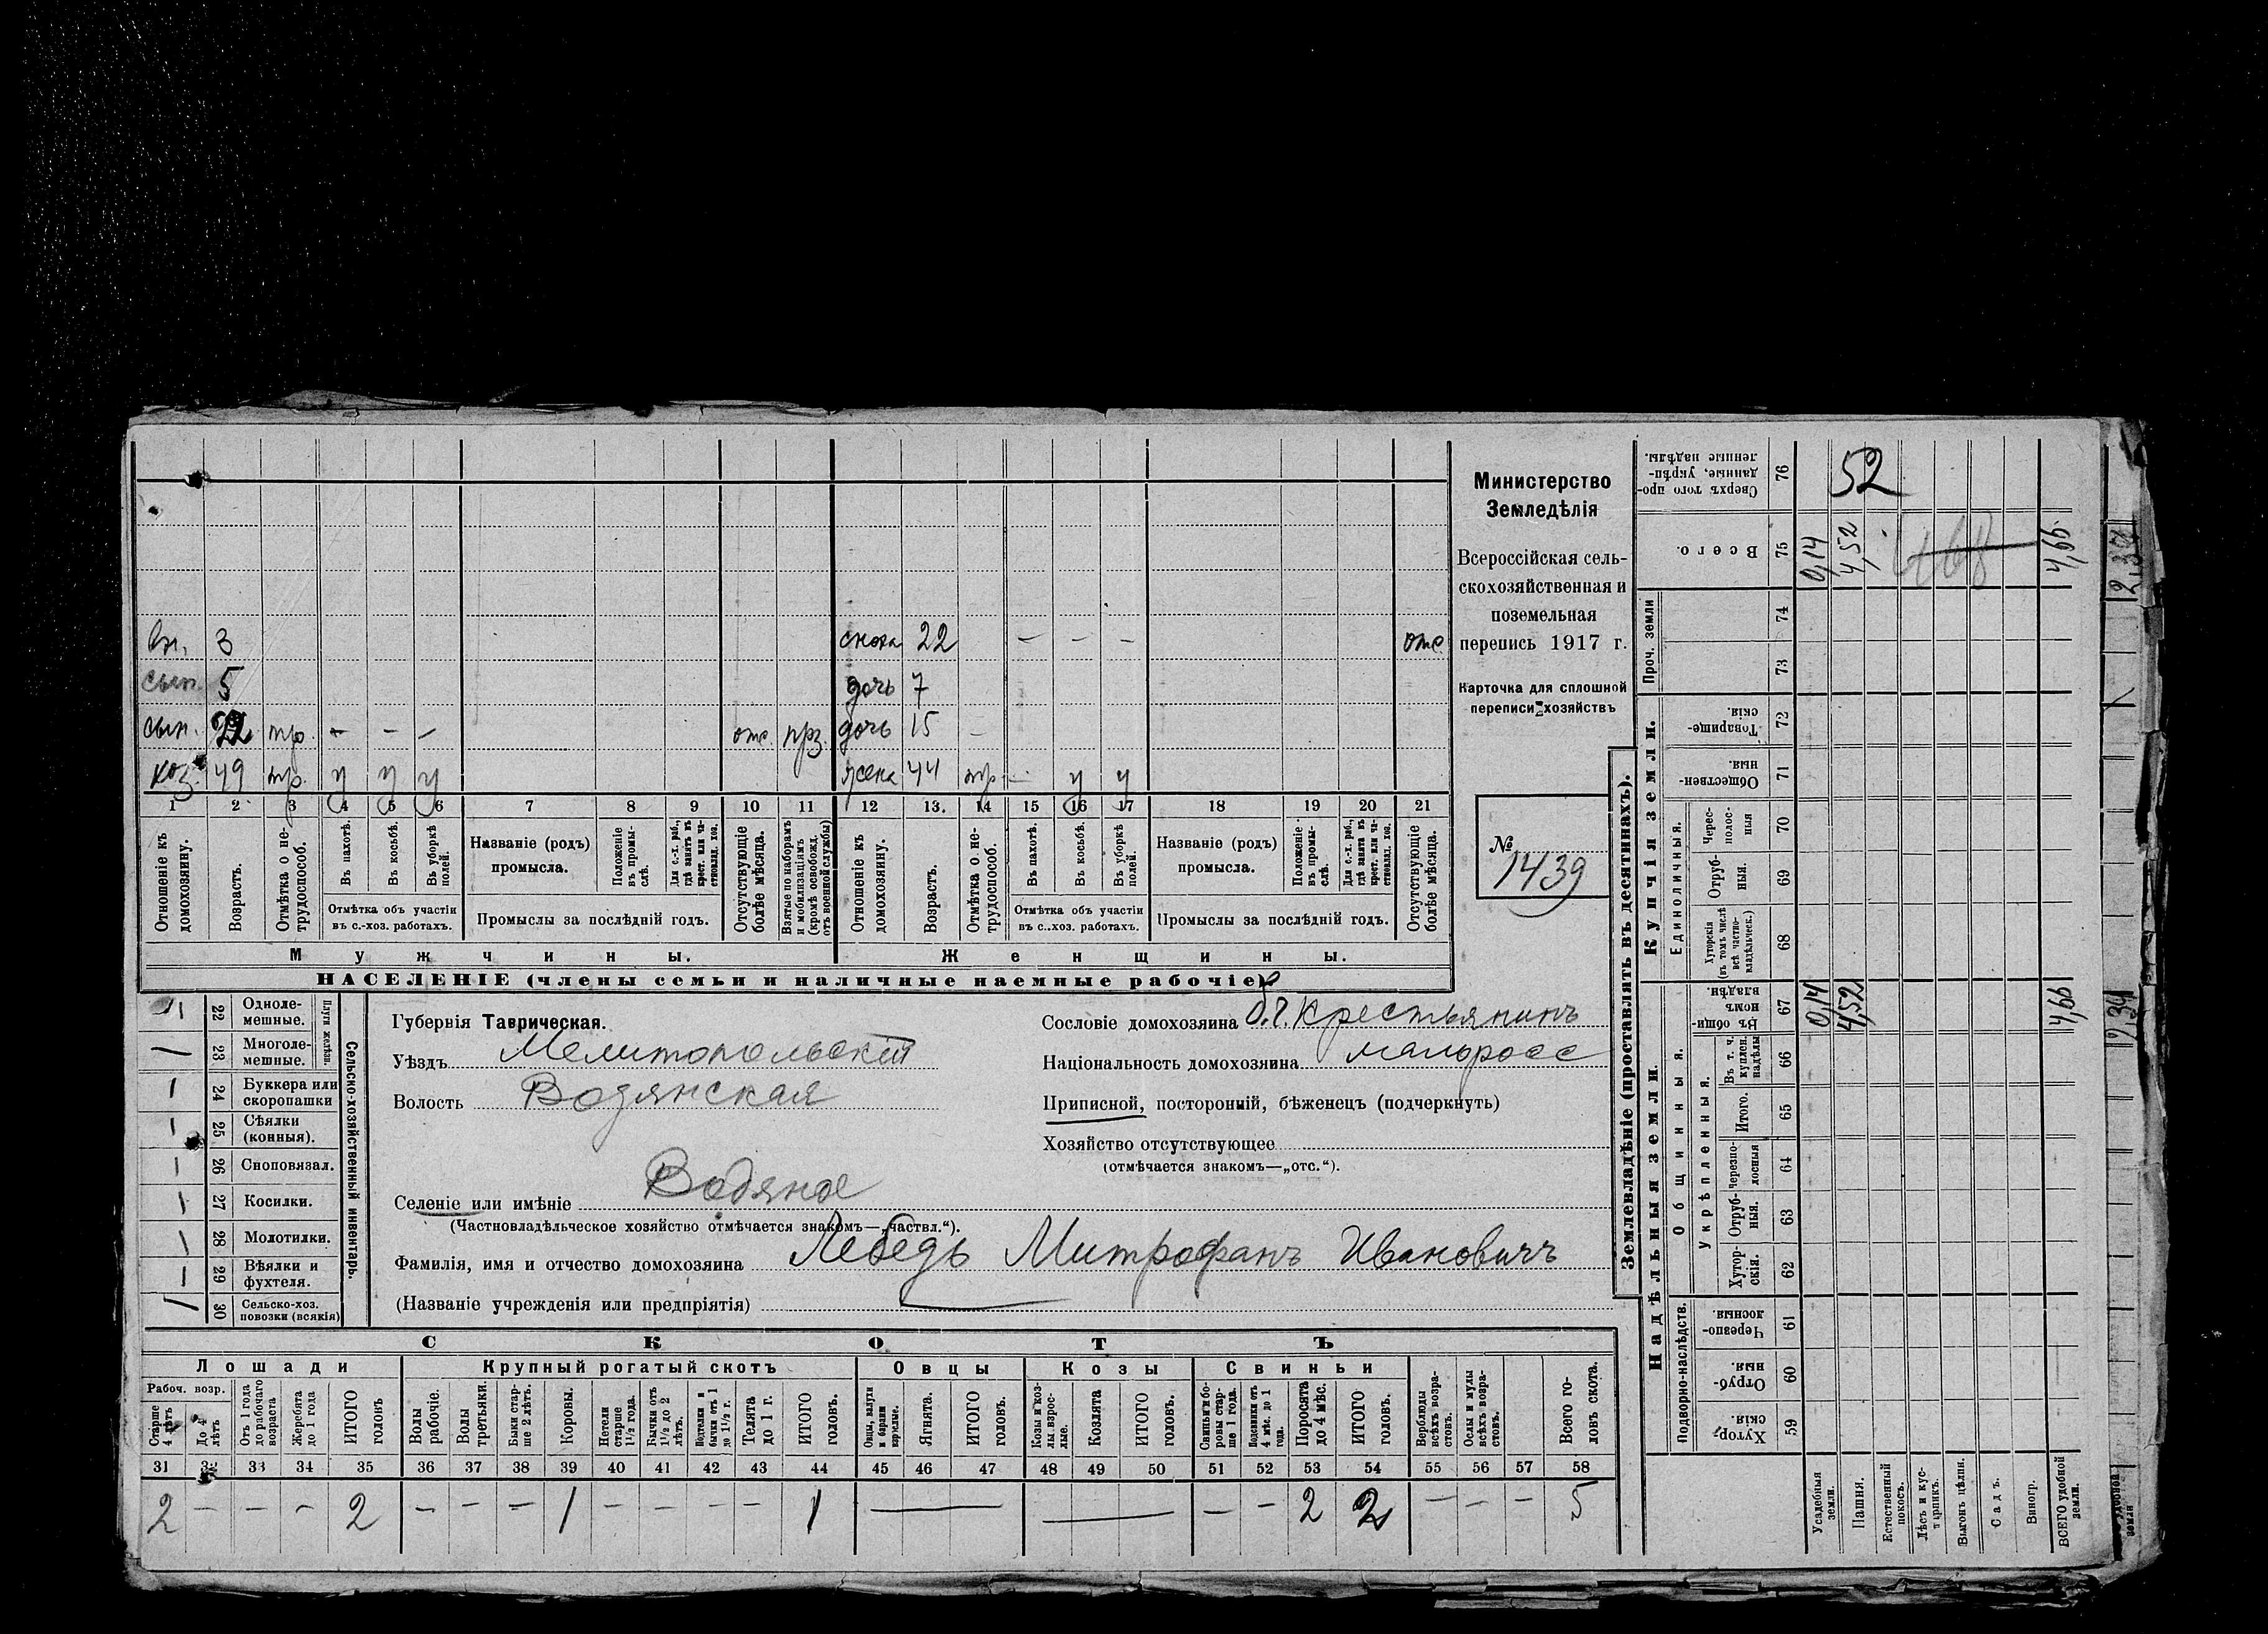 вн. 3 сноха 22 — — — отс
сын. 5 дочь 7
сын. 22 тр. — — — отс. прз. дочь 15 —
хоз. 49 тр. у у у жена 44 тр. — у у
1 2. 3 4 5 6 7 8 9 10 11 12 13. 14 15 16 17 18 19 20 21
Отношеніе къ домохозяину.
Возрастъ.
Отмѣтка о не-трудоспособ.
Въ пахотѣ.
Въ косьбѣ.
Въ уборкѣ полей.
Отмѣтка объ участіи
въ с.-хоз. работахъ.
Названіе (родъ)
промысла.
Положеніе въ промы-слѣ.
Для с.-х. раб., гдѣ занятъ въ крест. или ча-стновлад. хоз.
Промыслы за послѣдній годъ.
Отсутствующіе болѣе мѣсяца.
Взятые по наборамъ и мобилизаціямъ (кромѣ освобожд. отъ военной службы)
Отношеніе къ домохозяину.
Возрастъ.
Отмѣтка о не-трудоспособ.
Въ пахотѣ.
Въ косьбѣ.
Въ уборкѣ полей.
Отмѣтка объ участіи
въ с..хоз. работахъ.
Названіе (родъ)
промысла.
Положеніе въ промы-слѣ.
Для с.-х. раб., гдѣ занята въ крест. или ча-стновлад. хоз.
Промыслы за послѣдній годъ.
Отсутствующіе болѣе мѣсяца.
Мужчины. Женщины.
НАСЕЛЕНІЕ (члены семьи и наличные наемные рабочіе)
Министерство
Земледѣлія
Всероссійская сель-
скохозяйственная и
поземельная
перепись 1917 г.
Карточка для сплошной
переписи хозяйствъ
№
1439
Сельско-хозяйственный инвентарь.
Плуги желѣзн.
1 22 Одноле-мешные.
— 23 Многоле-мешные.
1 24 Буккера или скоропашки
1 25 Сѣялки (конныя).
1 26 Сноповязал.
1 27 Косилки.
1 28 Молотилки.
1 29 Вѣялки и фухтеля.
1 30 Сельско-хоз. повозки (всякія)
Губернія Таврическая.
Уѣздъ Мелитопольскій
Волость Водянская
Селеніе или имѣніе Водяное
(Частновладѣльческое хозяйство отмѣчается знакомъ—„частвл.“).
Фамилія, имя и отчество домохозяина Лебедь Митрофанъ Ивановичъ
(Названіе учрежденія или предпріятія)
Сословіе домохозяина Крестьянинъ
Національность домохозяина малоросс
Приписной, посторонній, бѣженецъ (подчеркнуть)
Хозяйство отсутствующее
(отмѣчается знакомъ—„отс.“).
СКОТЪ
Лошади Крупный рогатый скотъ Овцы Козы Свиньи
Рабоч. возр.
Старше 4 лѣтъ
До 4 лѣтъ
Отъ 1 года до рабочаго возраста
Жеребята до 1 года
ИТОГО головъ
Волы рабочіе.
Волы третьяки.
Быки стар-ше 2 лѣтъ.
Коровы.
Нетели старше 1½ года.
Бычки отъ 1½ до 2 лѣтъ.
Подтелки и бычки отъ 1 до 1½ г.
Телята до 1 г.
ИТОГО головъ.
Овцы, валухи и бараны взрослые.
Ягнята.
ИТОГО головъ.
Козы и коз-лы взрос-лые.
Козлята
ИТОГО головъ.
Свиньи и бо-ровы стар-ше 1 года.
Подсвинки отъ 4 мѣс. до 1 года.
Поросята до 4 мѣс.
ИТОГО головъ.
Верблюды всѣхъ возра-стовъ.
Ослы и мулы всѣхъ возра-стовъ.
Всего го-ловъ скота.
31 32 33 34 35 36 37 38 39 40 41 42 43 44 45 46 47 48 49 50 51 52 53 54 55 56 57 58
2 — — — 2 — — — 1 — — — — 1 — — — — 2 2 — — — 5
Землевладѣніе (проставлять въ десятинахъ).
Надѣльныя земли. Купчія земли. Проч. земли
Подворно-наслѣдств. Общинныя. Единоличныя.
Укрѣпленныя.
Хутор-скія. 59
Отруб-ныя. 60
Черезпо-лосныя 61
Хутор-скія. 62
Отруб-ныя. 63
черезпо-лосныя 64
Итого. 65
Въ т. ч. куплен. надѣлы 66
Въ общи-номъ владѣн. 67 0,14 4,52 4,66
Хуторскія (въ томъ числѣ всѣ частно-владѣльческ.) 68
Отруб-ныя. 69
Черес-полос-ныя 70
Обществен-ныя. 71
Товарище-скія. 72
73
74
Всего. 75 0,14 4,52 4,66
Сверхъ того про-данные, укрѣп-ленные надѣлы. 76 52
Усадебныя земли.
Пашня.
Естественный покосъ.
Лѣсъ и кус-тарникъ.
Выгонъ цѣлин.
Садъ.
Виногр.
ВСЕГО удобной земли.